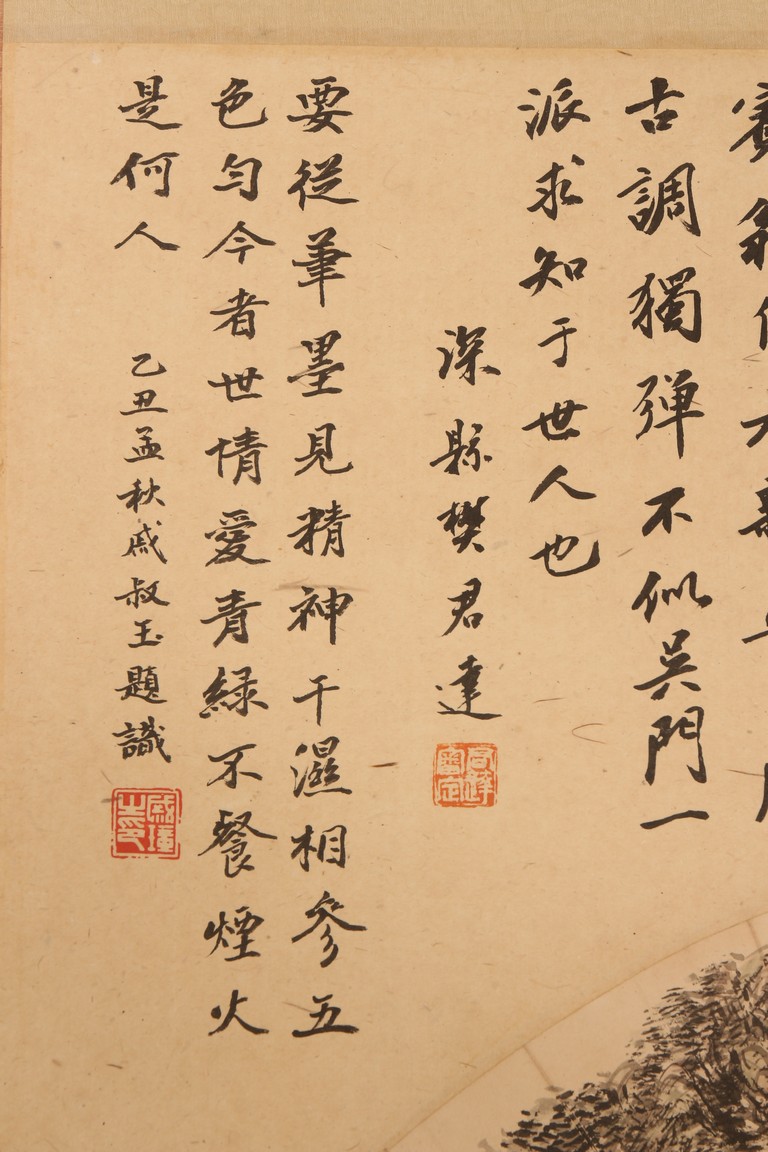 古調獨弹不似吴門一
派求知于世人也
深縣樊君達
要從筆墨見精神干濕相參五
色勻今者世情愛青緑不餐煙火
是何人
乙丑孟秋戚叔玉題識